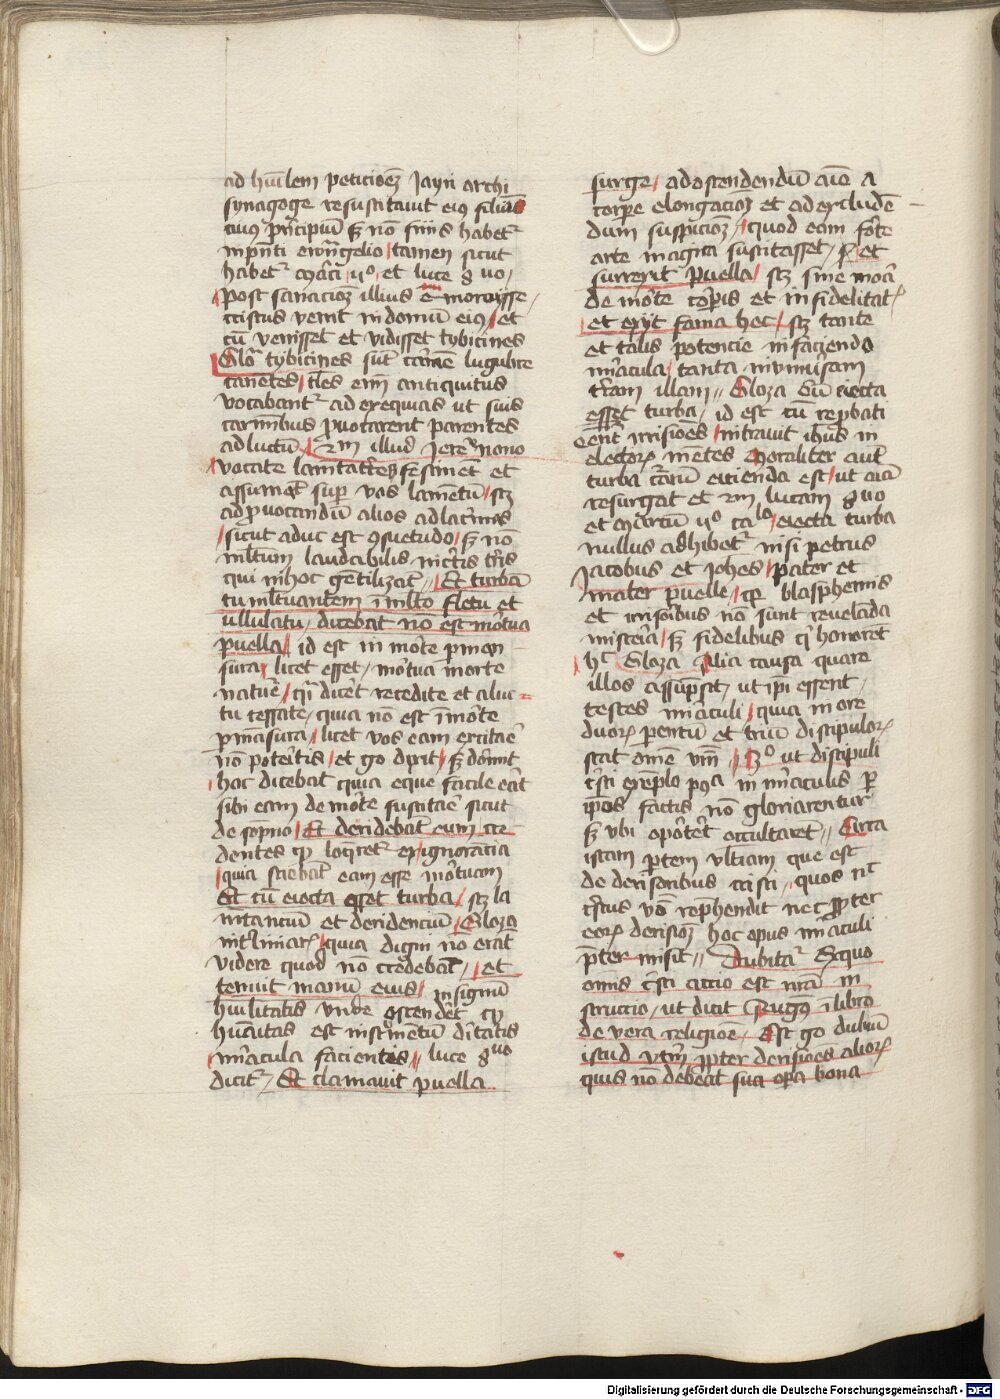 ad hu̅ilem peticioēʒ Jayri archi
synagoge resuscitauit eiꝯ filiam
cuiꝯ pͥncipiu̅ sꝫ non finis habetᷣ
in pn̅ti ewn̅gelio tamen sicut
habetᷣ mꝛ̅ci vᵒ et luce 8ᵘᵒ
post sanacioeʒ illius emoroysse
cristus venit in domu̅ eiꝯ et
cu̅ venisset et vidisset tybicines
Glo̅ tybicines su̅t carme̅ lugubre
cane̅tes tͣles eni̅ antiquitus
vocabantᷣ ad exequias ut suis
carminibus ꝓuocarent parentes
ad luctu̅ Sm̅ illud Jereͫ nono
vocate lamentatͥces festine̅t et
assuma̅t sup̲ vos lamentu̅ scꝫ
ad ꝓuocandu̅ alios ad lacͥmas
sicut aduc est ꝯsuetudo sꝫ no̅
mltum laudabilis in cͤtis tr̅is
qui in hoc ge̅tilizat Et turba̅
tumultuantem i̅ mlto fletu et
ullulatu dicebat no̅ est moͬtua
puella id est in moͬte p̲man
sura licet esset moͬtua morte
nature̅ qͣ diceͬt recedite et aluc
tu cessate quia no̅ est i̅ moͬte
p̲ma̅sura licet vos eam excitaͤ
no̅ poteͬitis et go dixit sꝫ doͬmit
hoc dicebat quia eque facile eͬat
sibi eam de moͬte suscitaͤ sicut
de so̅pno Et deridebat eum cre
dentes ꝙ loqͤretᷣ ex ignora̅cia
quia sciebat eam esse moͬtuam
Et cu̅ eiecta esset turba scꝫ la
menta̅ciu̅ et deridenciu̅ Gloza
int̅liniarꝭ quia digni no̅ eraͭt
videre quod no̅ credebat et
tenuit manu̅ eius in signu̅
hu̅ilitatis unde oste̅deͬt ꝙ
hu̅a̅itas est inst̅me̅tu̅ di̅tatis
miͬacula facientis luce 8ᵘᵒ
dicitᷣ Et clamauit puella
surge ad oste̅dendu̅ aie̅ a
corpe elongacio̅ʒ et ad exclude̅
dum suspicio̅ʒ quod eam foͬte
arte magica suscitasset et
surrexit puella scꝫ sine moͬa
de moͬte coͬpis et in fidelitatꝭ
et exijt fama hec scꝫ tante
et talis potencie in faciendo
miͬacula tanta in vniuͬsam
tr̅am illam Gloza Cu̅ eiecta
esset turba id est cu̅ rep̲bati
eent irrisio̅es intrauit ihus in
electorꝭ me̅tes Moraliter aut̅
turba caͬu̅ eicienda est ut aia̅
resurgat et sm̅ lucam 8ᵘᵒ
et Marcu̅ vᵒ caˡᵒ eiecta turba
nullus adhibetᷣ nisi petrus
Jacobus et Joh̅es pater et
mater puelle ꝙ blasphemis
et irrisoͬibus no̅ sunt reuela̅da
misteͬia sꝫ fidelibus qͥ honore̅t
hᶜ Gloza Alia causa quare
illos assu̅psit ut ip̅i essent
testes miͬaculi quia in ore
duorꝭ p̲entu̅ et triu̅ discipulorꝭ
stat om̅e vm̅ Sᵒ ut discipuli
cͥsti exe̅plo pꝯͣ in miͬaculis p̲
ip̅os factis no̅ gloriarentur
sꝫ vbi opoͬteͬt occultare̅t Circa
istam p̲tem vltiam que est
de derisoribus cristi quos nᶜ
cͥstus vͦ rep̲hendit nec ꝓpter
eorꝭ derisioʒ hoc opus miͬaculi
p̅termisit Dubitaᷣ Ex quo
om̅is cͥsti accio est nr̅a in
struccio ut dicit Augꝯ i libro
de vera religioe̅ Est go dubiu̅
istud vtͬm ꝓpter derisioe̅s aliorꝭ
quis no̅ debeat sua opͣa bona

Digitalisierung gefördert durch die Deutsche Forschungsgemeinschaft - DFG